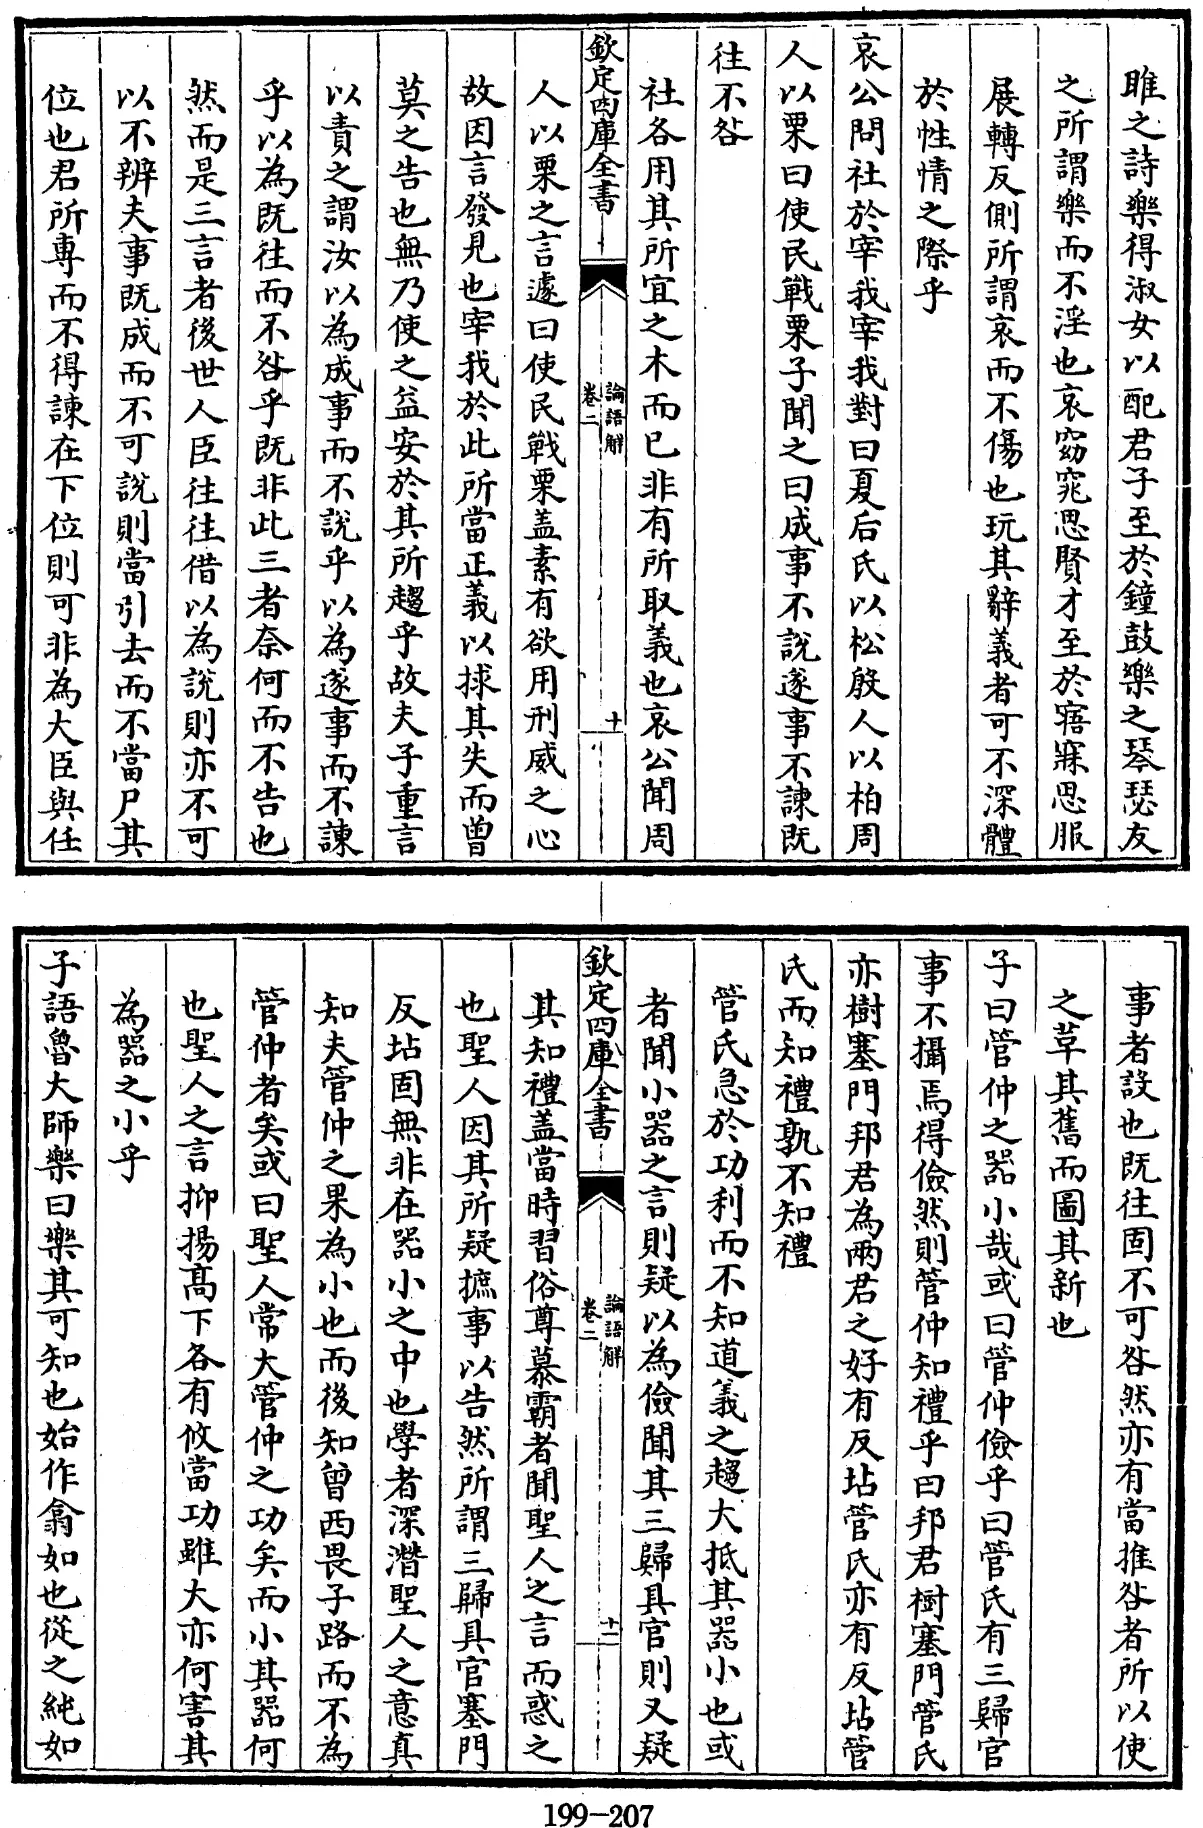 雎之詩樂得淑女以配君子至於鐘鼓樂之琴瑟友
之所謂樂而不淫也哀窈窕思賢才至於寤寐思服
展轉反側所謂哀而不傷也玩其辭義者可不深體
於性情之際乎
哀公問社於宰我宰我對曰夏后氏以松殷人以柏周
人以栗曰使民戰栗子聞之曰成事不說遂事不諫既
往不咎
社各用其所宜之木而已非有所取義也哀公聞周
欽定四庫全書
論語解
卷二
十
人以栗之言遽曰使民戰栗盖素有欲用刑威之心
故因言發見也宰我於此所當正義以捄其失而曾
莫之告也無乃使之益安於其所趨乎故夫子重言
以責之謂汝以為成事而不說乎以為遂事而不諫
乎以為既往而不咎乎既非此三者奈何而不告也
然而是三言者後世人臣往往借以為說則亦不可
以不辨夫事既成而不可說則當引去而不當尸其
位也君所專而不得諫在下位則可非為大臣與任
事者設也既往固不可咎然亦有當推咎者所以使
之草其舊而圖其新也
子曰管仲之器小哉或曰管仲儉乎曰管氏有三歸官
事不攝焉得儉然則管仲知禮乎曰邦君樹塞門管氏
亦樹塞門邦君為兩君之好有反坫管氏亦有反坫管
氏而知禮孰不知禮
管氏急於功利而不知道義之趨大抵其器小也或
者聞小器之言則疑以為儉聞其三歸具官則又疑
欽定四庫全書
論語解
卷二
十一
其知禮盖當時習俗尊慕霸者聞聖人之言而惑之
也聖人因其所疑摭事以告然所謂三歸具官塞門
反坫固無非在器小之中也學者深潛聖人之意真
知夫管仲之果為小也而後知曾西畏子路而不為
管仲者矣或曰聖人常大管仲之功矣而小其器何
也聖人之言抑揚髙下各有攸當功雖大亦何害其
為器之小乎
子語魯大師樂曰樂其可知也始作翕如也從之純如
199-207